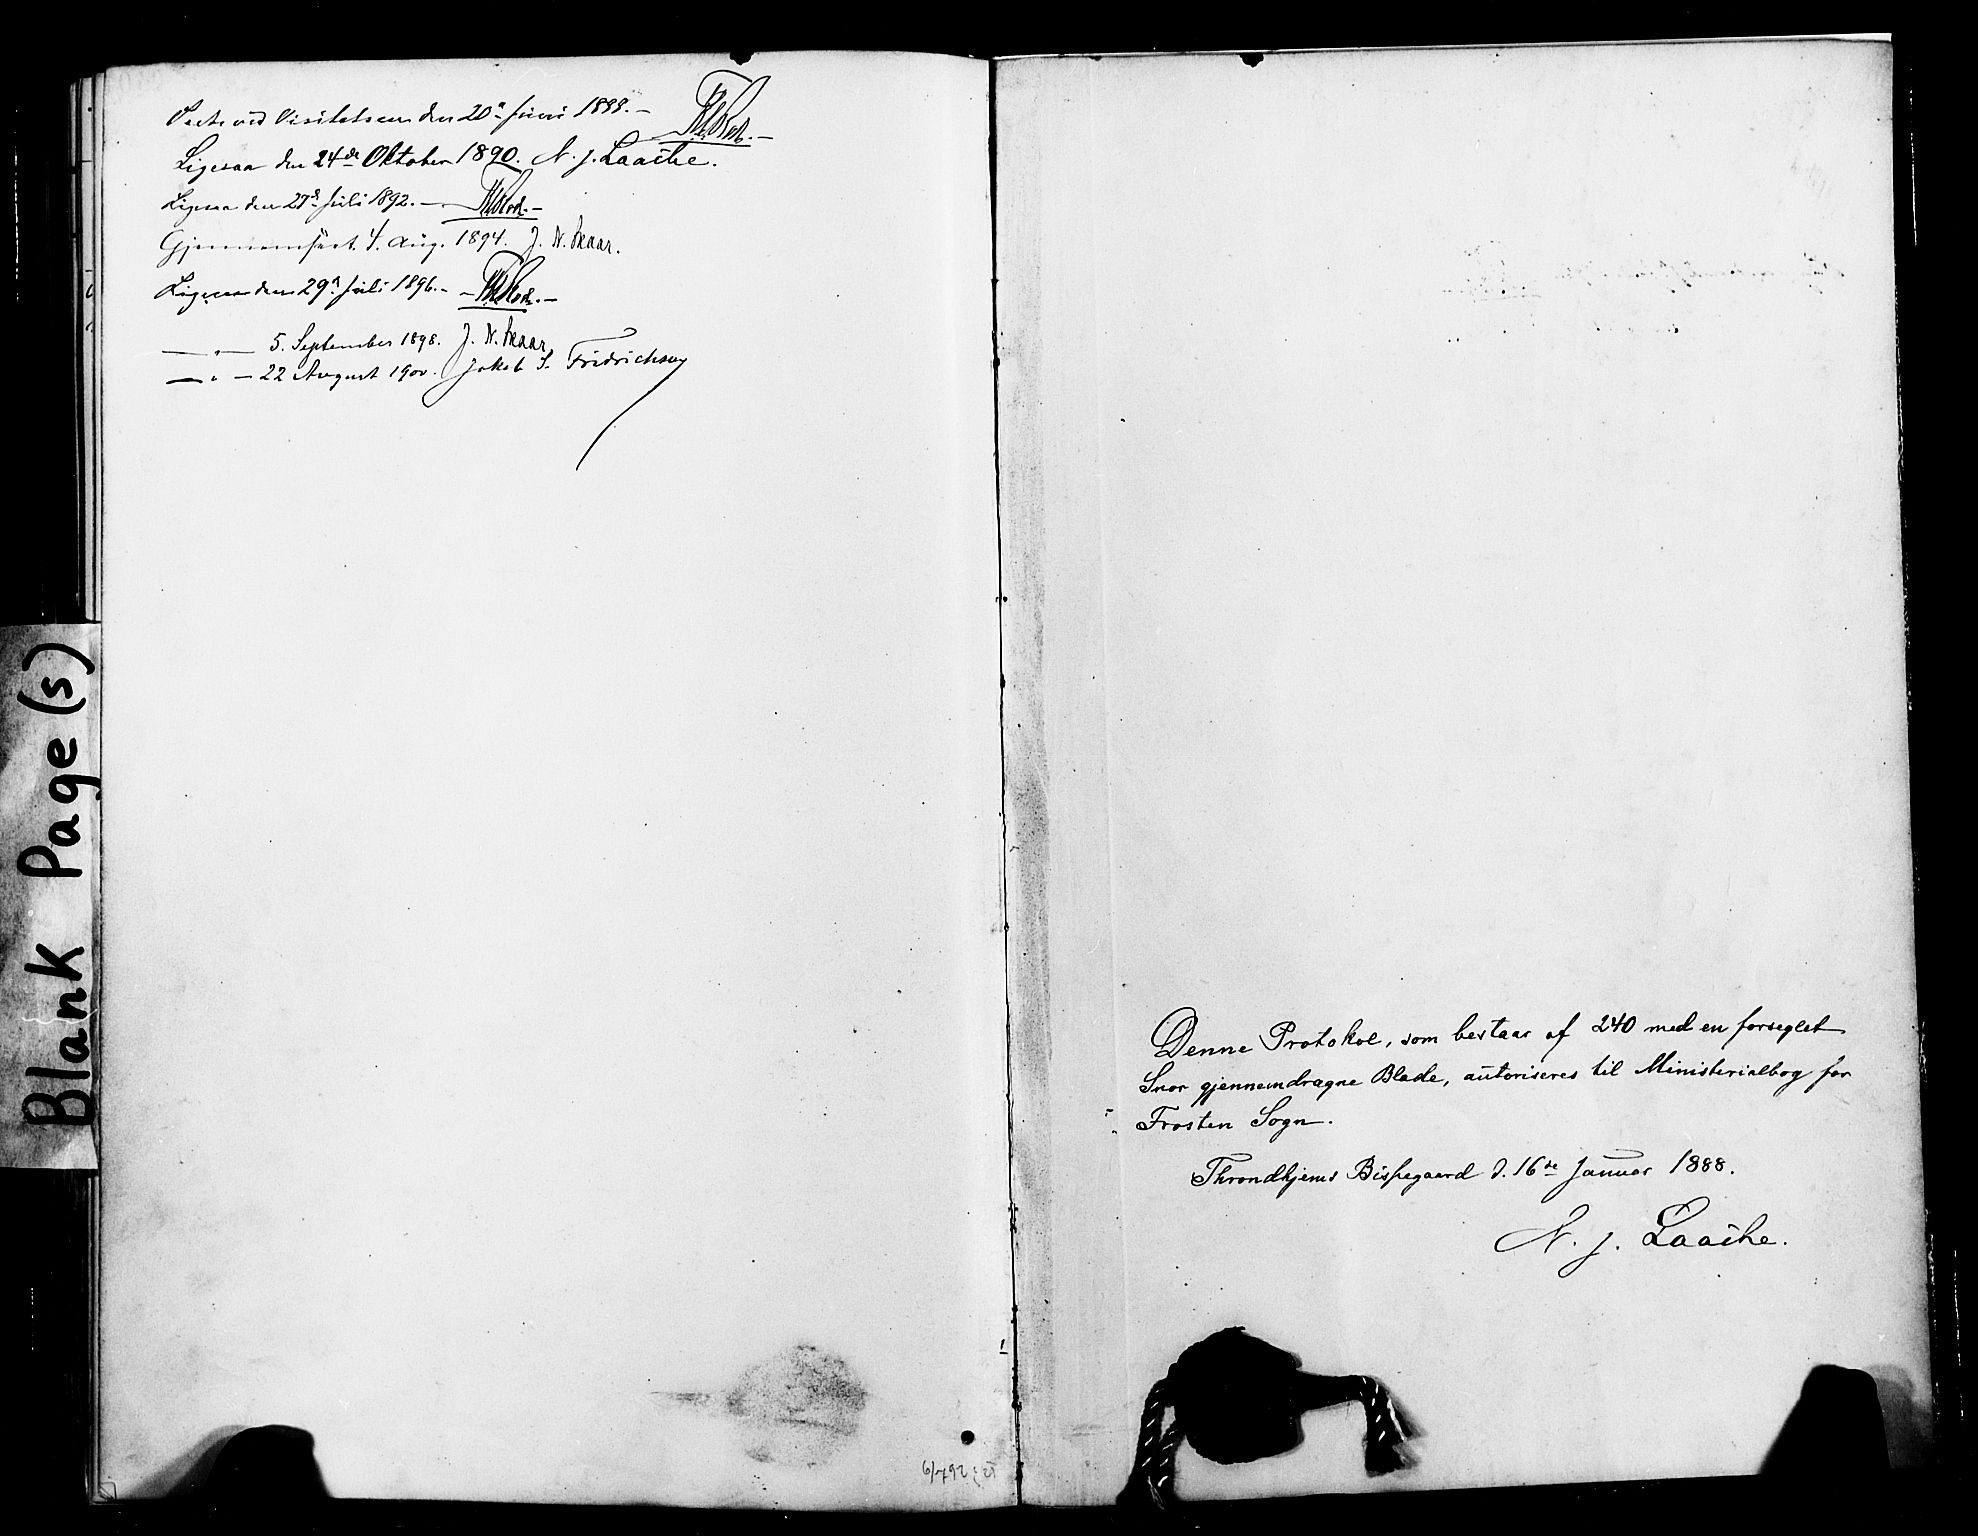 Seet ved Visitatsen den 20de Juni 1888. –
Ligesaa den 24de Oktober 1890. N. J. Laache.
Ligesaa den 27de Juli 1892. –
Gjennemseet 4. Aug. 1894. J. N. Skaar.
Ligesaa den 29de Juli 1896. –
— " — 5. September 1898. J. N. Skaar
— " — 22 August 1900. Jakob S. Fridrichsen
Blank Page(s)
Denne Protokol, som bestaar af 240 med en forseglet
Snor gjennemdragne Blade, autoriseres til Ministerialbog for
Frosten Sogn.
Throndhjems Bispegaard d. 16de Januar 1888.
N. J. Laache.